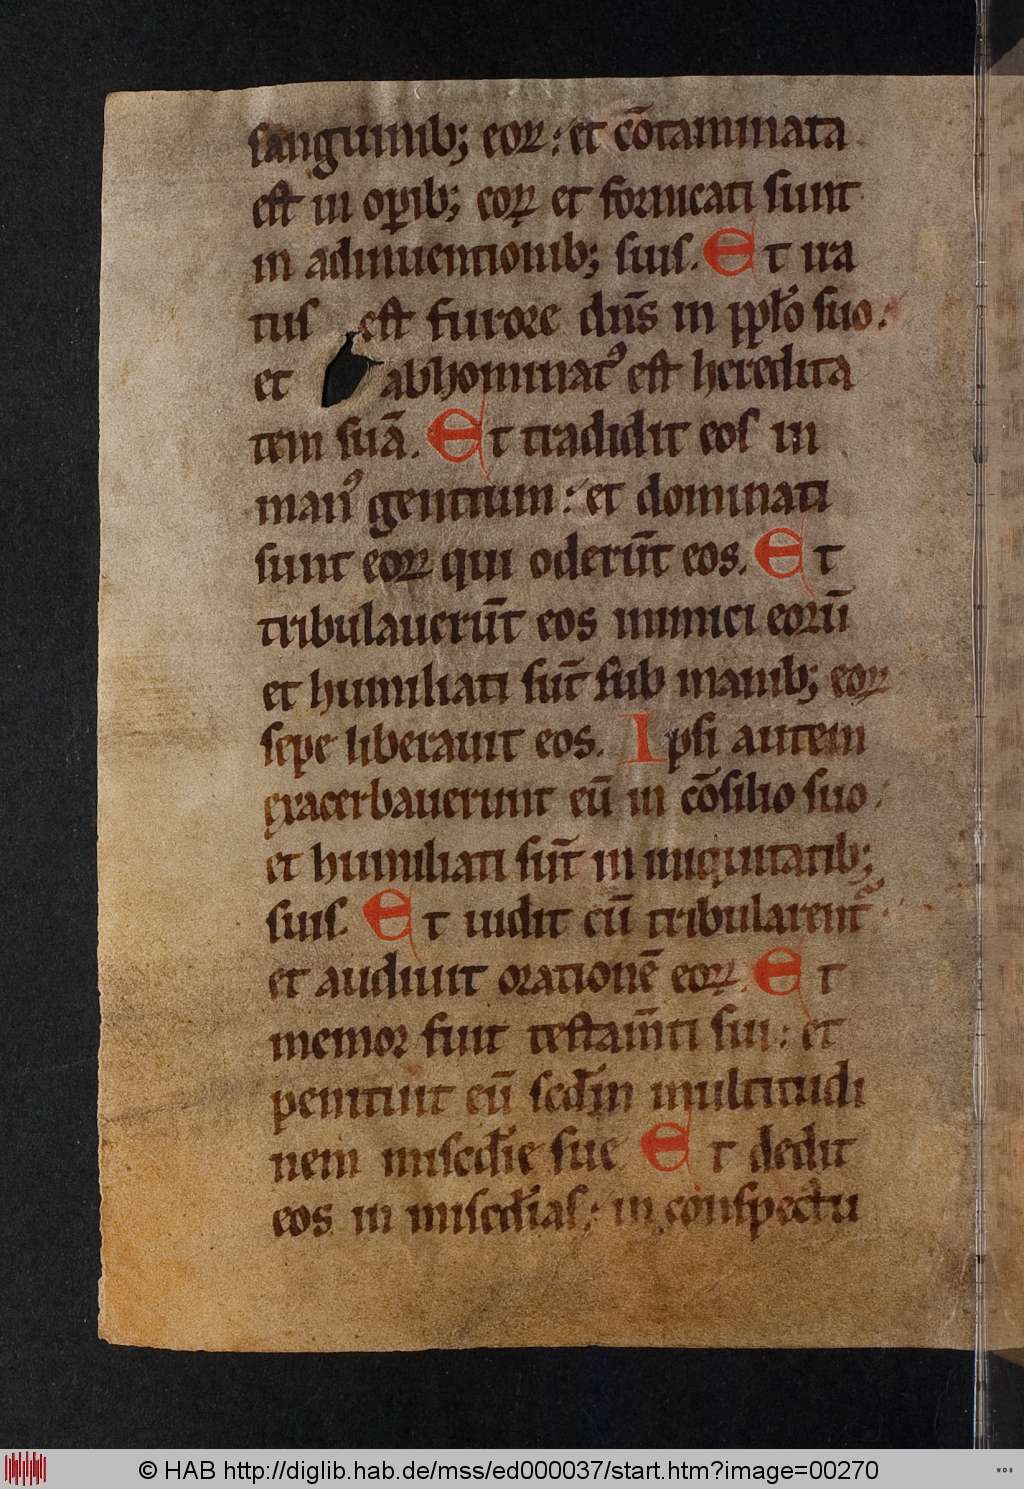 sanguinib; eoꝝ: et cōtaminata
est in oꝑib; eoꝝ et fornicati sunt
in adinuentionib; suis. Et ira
tus est furore dn̄s in ppl̓o suo.
et abhominatꝰ est heredita
tem suā. Et tradidit eos in
manꝰ gentium: et dominati
sunt eoꝝ qui oderūt eos. Et
tribulauerūt eos inimici eorū
et humiliati sūt sub manib; eoꝝ
sepe liberauit eos. Ipsi autem
exacerbauerunt eū in cōsilio suo.
et humiliati sūt in iniquitatib;
suis. Et uidit cū tribularent᷑
et audiuit orationē eoꝝ. Et
memor fuit testam̄ti sui: et
penituit eū scd̄m multitudi
nem mis̄cdie sue Et dedit
eos in mis̄cdias: in conspectu
© HAB http://diglib.hab.de/mss/ed000037/start.htm?image=00270